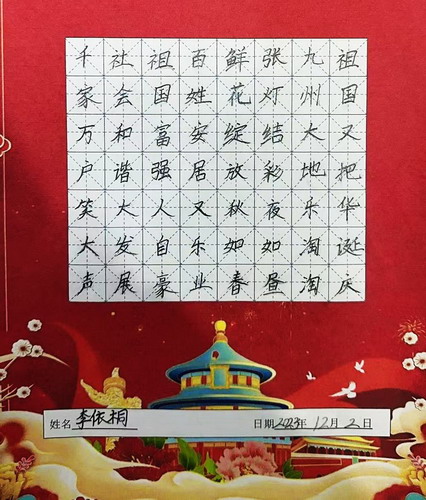 祖国又把华诞庆
九州大地乐淘淘
张灯结彩夜如昼
鲜花绽放秋如春
百姓安居又乐业
祖国富强人自豪
社会和谐大发展
千家万户笑大声
姓名 李依桐 日期 2023年 12月 2日